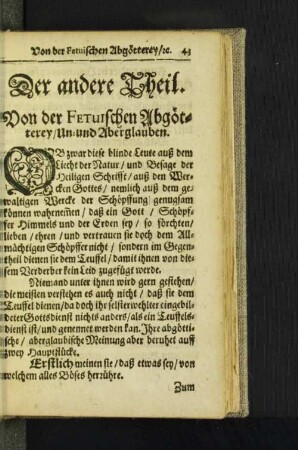 Von der Fetuischen Abgötterey/ꝛc. 43
Der andere Theil.
Von der FETUIschen Abgöt-
terey/Un- und Aberglauben.
OB zwar diese blinde Leute auß dem
Liecht der Natur/ und Besage der
Heiligen Schrifft/ auß den Wer-
cken Gottes/ nemlich auß dem ge-
waltigen Wercke der Schöpffung genugsam
können wahrnem̃en/ daß ein Gott/ Schöpf-
fer Himmels und der Erden sey/ so förchten/
lieben/ ehren/ und vertrauen sie doch dem All-
mächtigen Schöpffer nicht/ sondern im Gegen-
theil dienen sie dem Teuffel/ damit ihnen von die-
sem Verderber kein Leid zugefügt werde.
Niemand unter ihnen wird gern gestehen/
die meisten verstehen es auch nicht/ daß sie dem
Teuffel dienen/ da doch ihr selbsterwehlter eingebil-
deter Gottsdienst nichts anders/ als ein Teuffels-
dienst ist/ und genennet werden kan. Ihre abgötti-
sche/ aberglaubische Meinung aber beruhet auff
zwey Hauptstücke.
Erstlich meinen sie/ daß etwas sey/ von
welchem alles Böses herrühre.
Zum